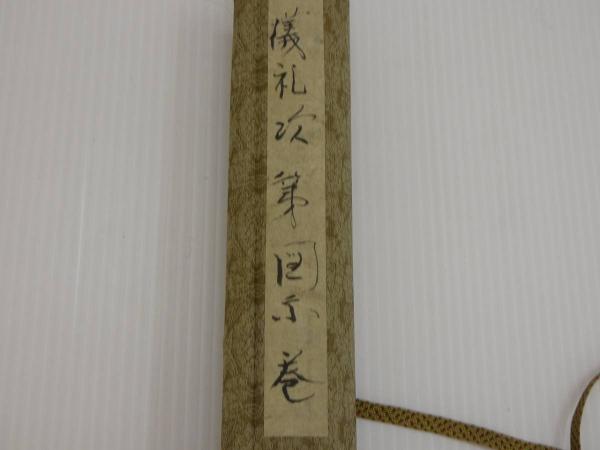 儀礼次第図示巻